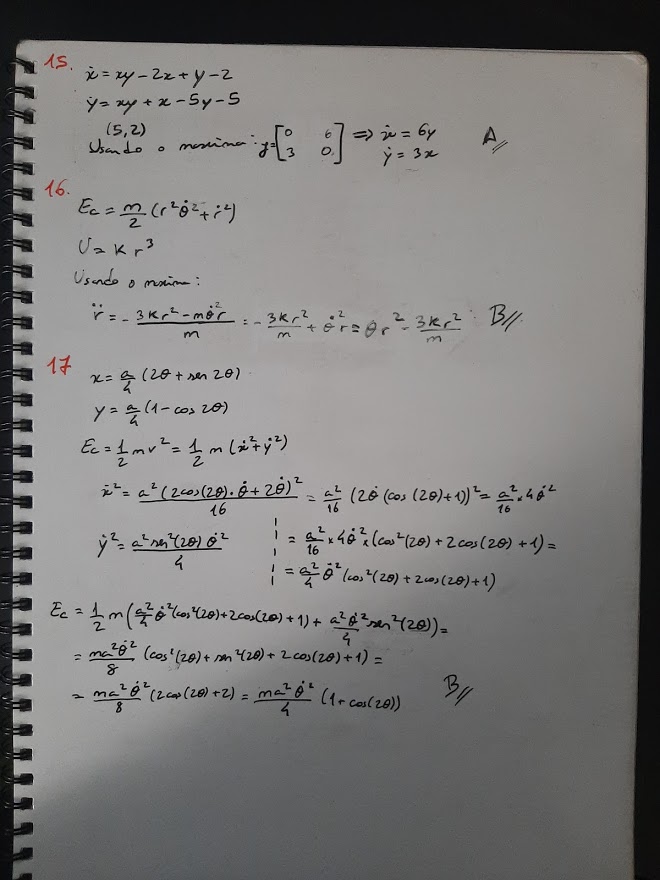 15.
ẋ = xy - 2x + y - 2
ẏ = xy + x - 5y - 5
(5,2)
Usando o maxima: y = [0 6; 3 0] ⇒ ẋ = 6y
ẏ = 3x
A//
16.
Ec = m/2 (r²θ̇² + ṙ²)
U = K r³
Usando o maxima:
r̈ = - (3Kr² - mθ̇²r)/m = - 3Kr²/m + θ̇²r = θ̇r² - 3Kr²/m B//
17
x = a/4 (2θ + sen 2θ)
y = a/4 (1 - cos 2θ)
Ec = 1/2 mv² = 1/2 m (ẋ² + ẏ²)
ẋ² = a² (2cos(2θ)·θ̇ + 2θ̇)²/16 = a²/16 (2θ̇ (cos(2θ) + 1))² = a²/16 × 4θ̇²
ẏ² = a² sen²(2θ) θ̇²/4
= a²/16 × 4θ̇² × (cos²(2θ) + 2cos(2θ) + 1) =
= a²/4 θ̇² (cos²(2θ) + 2cos(2θ) + 1)
Ec = 1/2 m (a²/4 θ̇² (cos²(2θ) + 2cos(2θ) + 1) + a²θ̇²/4 sen²(2θ)) =
= ma²θ̇²/8 (cos²(2θ) + sen²(2θ) + 2cos(2θ) + 1) =
= ma²θ̇²/8 (2cos(2θ) + 2) = ma²θ̇²/4 (1 + cos(2θ)) B//